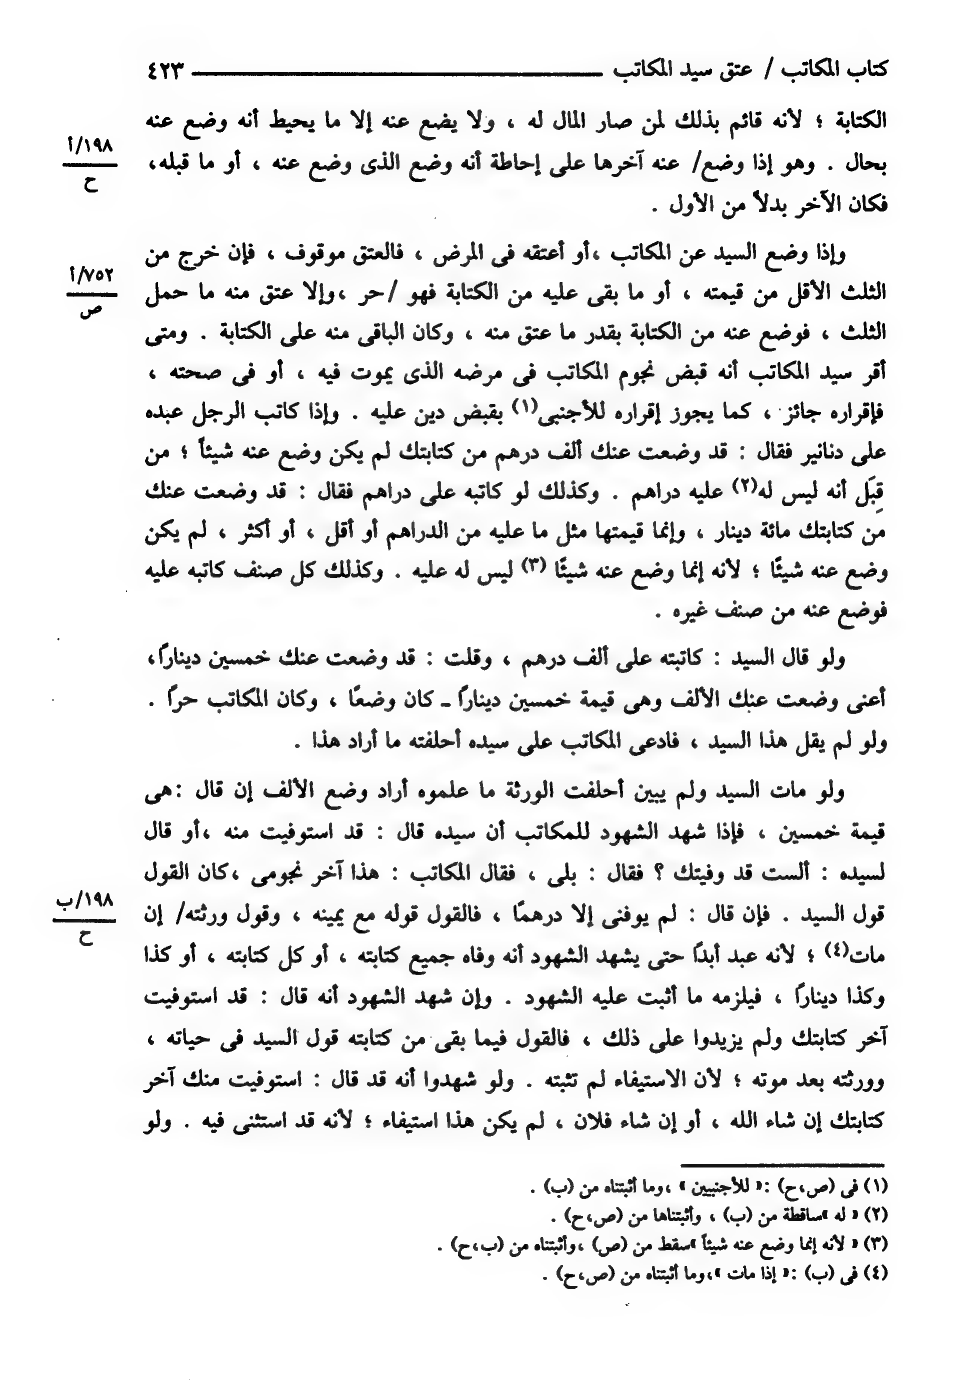 كتاب المكاتب / عتق سيد المكاتب ٤٢٣
الكتابة ؛ لأنه قائم بذلك لمن صار المال له ، ولا يضع عنه إلا ما يحيط أنه وضع عنه
بحال . وهو إذا وضع/ عنه آخرها على إحاطة أنه وضع الذى وضع عنه ، أو ما قبله،
١٩٨/أ
ح
فكان الآخر بدلاً من الأول .
وإذا وضع السيد عن المكاتب ،أو أعتقه فى المرض ، فالعتق موقوف ، فإن خرج من
الثلث الأقل من قيمته ، أو ما بقى عليه من الكتابة فهو /حر ،وإلا عتق منه ما حمل
٧٥٢/أ
ص
الثلث ، فوضع عنه من الكتابة بقدر ما عتق منه ، وكان الباقى منه على الكتابة . ومتى
أقر سيد المكاتب أنه قبض نجوم المكاتب فى مرضه الذى يموت فيه ، أو فى صحته ،
فإقراره جائز ، كما يجوز إقراره للأجنبى(١) بقبض دين عليه . وإذا كاتب الرجل عبده
على دنانير فقال : قد وضعت عنك ألف درهم من كتابتك لم يكن وضع عنه شيئاً ؛ من
قِبَل أنه ليس له(٢) عليه دراهم . وكذلك لو كاتبه على دراهم فقال : قد وضعت عنك
من كتابتك مائة دينار ، وإنما قيمتها مثل ما عليه من الدراهم أو أقل ، أو أكثر ، لم يكن
وضع عنه شيئًا ؛ لأنه إنما وضع عنه شيئًا (٣) ليس له عليه . وكذلك كل صنف كاتبه عليه
فوضع عنه من صنف غيره .
ولو قال السيد : كاتبته على ألف درهم ، وقلت : قد وضعت عنك خمسين دينارًا،
أعنى وضعت عنك الألف وهى قيمة خمسين دينارًا ـ كان وضعًا ، وكان المكاتب حرًا .
ولو لم يقل هذا السيد ، فادعى المكاتب على سيده أحلفته ما أراد هذا .
ولو مات السيد ولم يبين أحلفت الورثة ما علموه أراد وضع الألف إن قال :هى
قيمة خمسين ، فإذا شهد الشهود للمكاتب أن سيده قال : قد استوفيت منه ،أو قال
لسيده : ألست قد وفيتك ؟ فقال : بلى ، فقال المكاتب : هذا آخر نجومى ،كان القول
قول السيد . فإن قال : لم يوفنى إلا درهمًا ، فالقول قوله مع يمينه ، وقول ورثته/ إن
١٩٨/ب
ح
مات(٤) ؛ لأنه عبد أبدًا حتى يشهد الشهود أنه وفاه جميع كتابته ، أو كل كتابته ، أو كذا
وكذا دينارًا ، فيلزمه ما أثبت عليه الشهود . وإن شهد الشهود أنه قال : قد استوفيت
آخر كتابتك ولم يزيدوا على ذلك ، فالقول فيما بقى من كتابته قول السيد فى حياته ،
وورثته بعد موته ؛ لأن الاستيفاء لم تثبته . ولو شهدوا أنه قد قال : استوفيت منك آخر
كتابتك إن شاء الله ، أو إن شاء فلان ، لم يكن هذا استيفاء ؛ لأنه قد استثنى فيه . ولو
(١) فى (ص،ح) :« للأجنبيين » ،وما أثبتناه من (ب) .
(٢) « له »ساقطة من (ب) ، وأثبتناها من (ص،ح) .
(٣) « لأنه إنما وضع عنه شيئاً »سقط من (ص) ،وأثبتناه من (ب،ح) .
(٤) فى (ب) :« إذا مات »،وما أثبتناه من (ص،ح) .